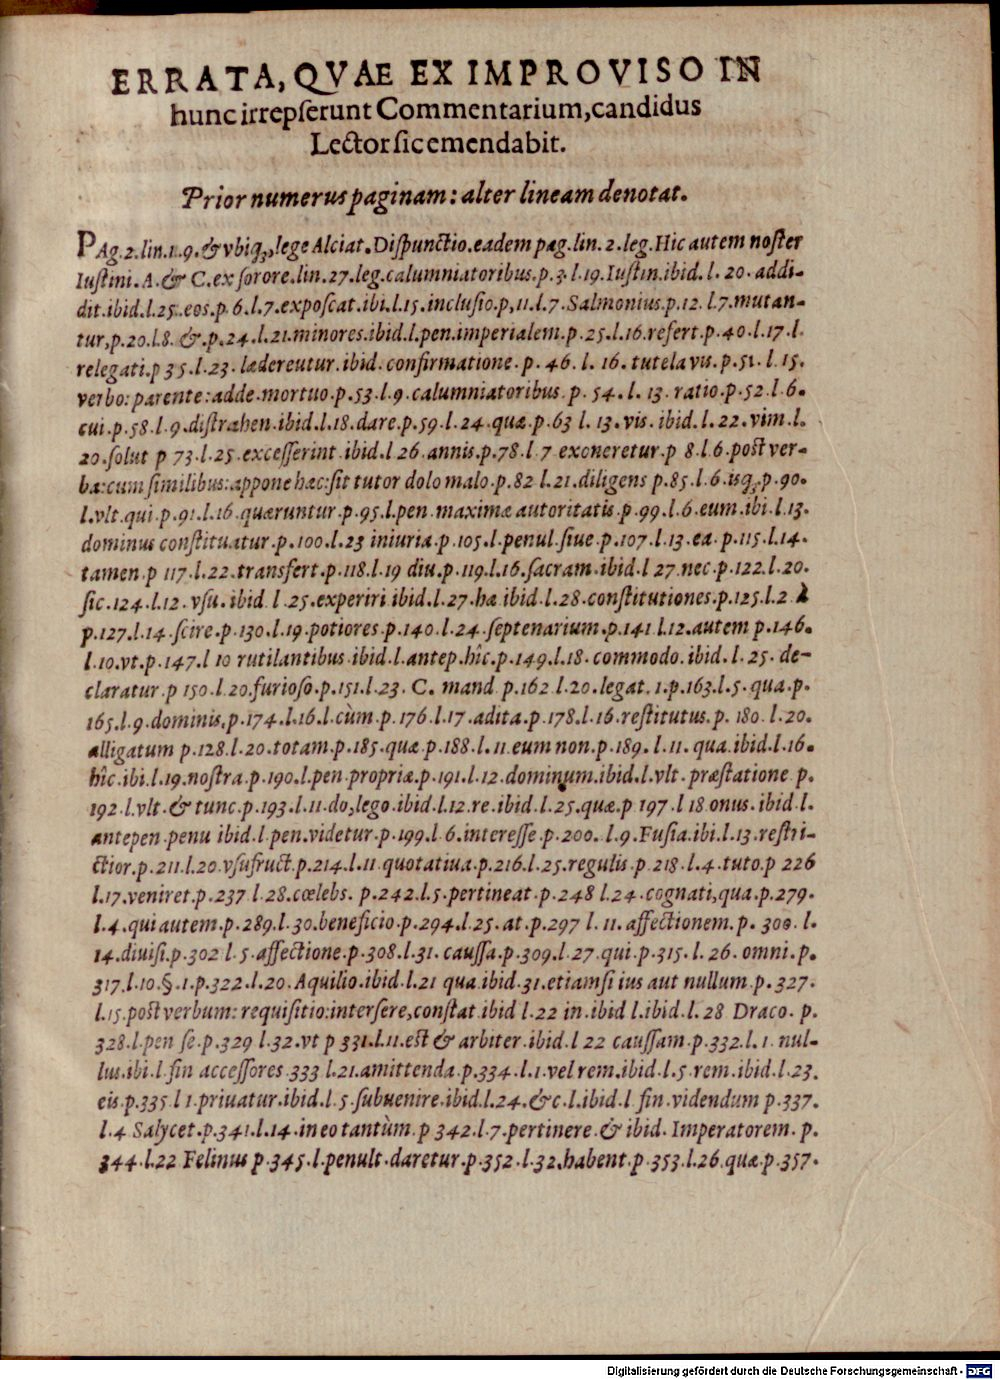 ERRATA, QVAE EX IMPROVISO IN
hunc irrepſerunt Commentarium, candidus
Lector ſic emendabit.
Prior numerus paginam: alter lineam denotat.
PAg. 2. lin. 1. 9. & vbiq;, lege Alciat. Diſpunctio. eadem pag. lin. 2. leg. Hic autem noſter
Iuſtini. A. & C. ex ſorore. lin. 27. leg. calumniatoribus. p. 3. l. 19. Iuſtin. ibid. l. 20. addi-
dit. ibid. l. 25. eos. p. 6. l. 7. expoſcat. ibi. l. 15. incluſio. p, 11. l. 7. Salmonius. p. 12. l. 7. mutan-
tur, p. 20. l. 8. &. p. 24. l. 21. minores. ibid. l. pen. imperialem. p. 25. l. 16. refert. p. 40. l. 17. l.
relegati. p 35. l. 23. lædereutur. ibid. confirmatione. p. 46. l. 16. tutela vis. p. 51. l. 15.
verbo: parente: adde. mortuo. p. 53. l. 9. calumniatoribus. p. 54. l. 13. ratio. p. 52. l. 6.
cui. p. 58. l. 9. diſtrahen. ibid. l. 18. dare. p. 59. l. 24. quæ. p. 63 l. 13. vis. ibid. l. 22. vim. l.
20. ſolut p 73. l. 25. exceſſerint. ibid. l 26. annis. p. 78. l 7 exoneretur. p 8. l. 6. poſt ver-
ba: cum ſimilibus: appone hæc: ſit tutor dolo malo. p. 82 l. 21. diligens p. 85. l. 6. iſq;. p. 90.
l. vlt. qui. p. 91. l. 16. quæruntur. p. 95. l. pen. maximæ autoritatis. p. 99. l. 6. eum. ibi. l. 13.
dominus conſtituatur. p. 100. l. 23 iniuria. p. 105. l. penul. ſiue. p. 107. l. 13. ea. p. 115. l. 14.
tamen. p 117. l. 22. transfert. p. 118. l. 19 diu. p. 119. l. 16. ſacram. ibid. l 27. nec. p. 122. l. 20.
ſic. 124. l. 12. vſu. ibid. l. 25. experiri ibid. l. 27. ha ibid. l. 28. conſtitutiones. p. 125. l. 2 à
p. 127. l. 14. ſcire. p. 130. l. 19. potiores. p. 140. l. 24. ſeptenarium. p. 141 l. 12. autem p. 146.
l. 10. vt. p. 147. l 10 rutilantibus. ibid. l. antep. hîc. p. 149. l. 18. commodo. ibid. l. 25. de-
claratur. p 150. l. 20. furioſo. p. 151. l. 23. C. mand p. 162 l. 20. legat. 1. p. 163. l. 5. qua. p.
165. l. 9. dominis, p. 174. l. 16. l. cùm. p. 176. l. 17. adita. p. 178. l. 16. reſtitutus. p. 180. l. 20.
alligatum p. 128. l. 20. totam. p. 185. quæ p. 188. l. 11. eum non. p. 189. l. 11. qua. ibid. l. 16.
hîc. ibi. l. 19. noſtra. p. 190. l. pen. propriæ. p. 191. l. 12. dominum. ibid. l. vlt. præſtatione p.
192. l. vlt. & tunc. p. 193. l. 11. do, lego. ibid. l. 12. re. ibid. l. 25. quæ. p 197 l 18. onus. ibid. l.
antepen. penu ibid. l. pen. videtur. p. 199. l. 6. intereſſe. p. 200. l. 9. Fuſia. ibi. l. 13. reſtri-
ctior. p. 211. l. 20. vſufruct. p. 214. l. 11 quotatiua. p. 216. l. 25. regulis. p. 218. l. 4. tuto. p 226
l. 17. veniret. p. 237 l. 28. cœlebs. p. 242. l. 5. pertineat. p. 248 l. 24. cognati, qua. p. 279.
l. 4. qui autem. p. 289. l. 30. beneficio. p. 294. l. 25. at. p. 297 l. 11. affectionem. p. 300. l.
14. diuiſi. p. 302 l. 5. affectione. p. 308. l. 31. cauſſa. p. 309. l. 27. qui. p. 315. l. 26. omni. p.
317. l. 10. §. 1. p. 322. l. 20. Aquilio. ibid. l. 21 qua. ibid. 31. etiamſi ius aut nullum. p. 327.
l. 15. poſt verbum: requiſitio: interſere, conſtat. ibid l. 22 in. ibid l. ibid. l. 28 Draco. p.
328. l. pen ſe. p. 329 l. 32. vt p 331. l. 11. eſt & arbiter. ibid. l 22 cauſſam. p. 332. l. 1. nul-
lus. ibi. l. fin acceſſores 333 l. 21. amittenda. p. 334. l. 1. vel rem. ibid. l. 5. rem. ibid. l. 23.
eis. p. 335 l 1. priuatur. ibid. l. 5. ſubuenire. ibid. l. 24. &c. l. ibid. l. fin. videndum p. 337.
l. 4. Salycet. p. 341. l. 14. in eo tantùm. p 342. l. 7. pertinere. & ibid. Imperatorem. p.
344. l. 22 Felinus p. 345. l. penult. daretur. p. 352. l. 32. habent. p. 353. l. 26. quæ. p. 357.
Digitalisierung gefördert durch die Deutsche Forschungsgemeinschaft - DFG